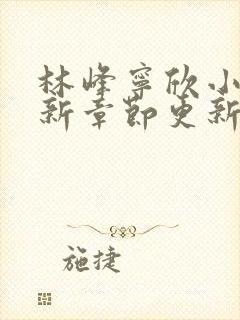 林峰寧欣小
新章節更新
施捷